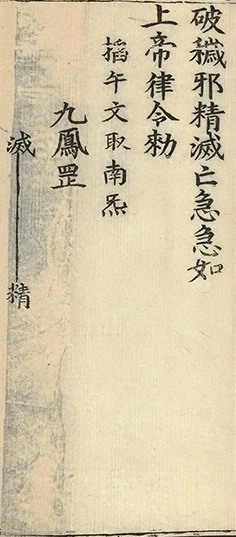 破穢邪精滅亡急急如
上帝律令勑
搯午文取南炁
九鳳罡
滅
精